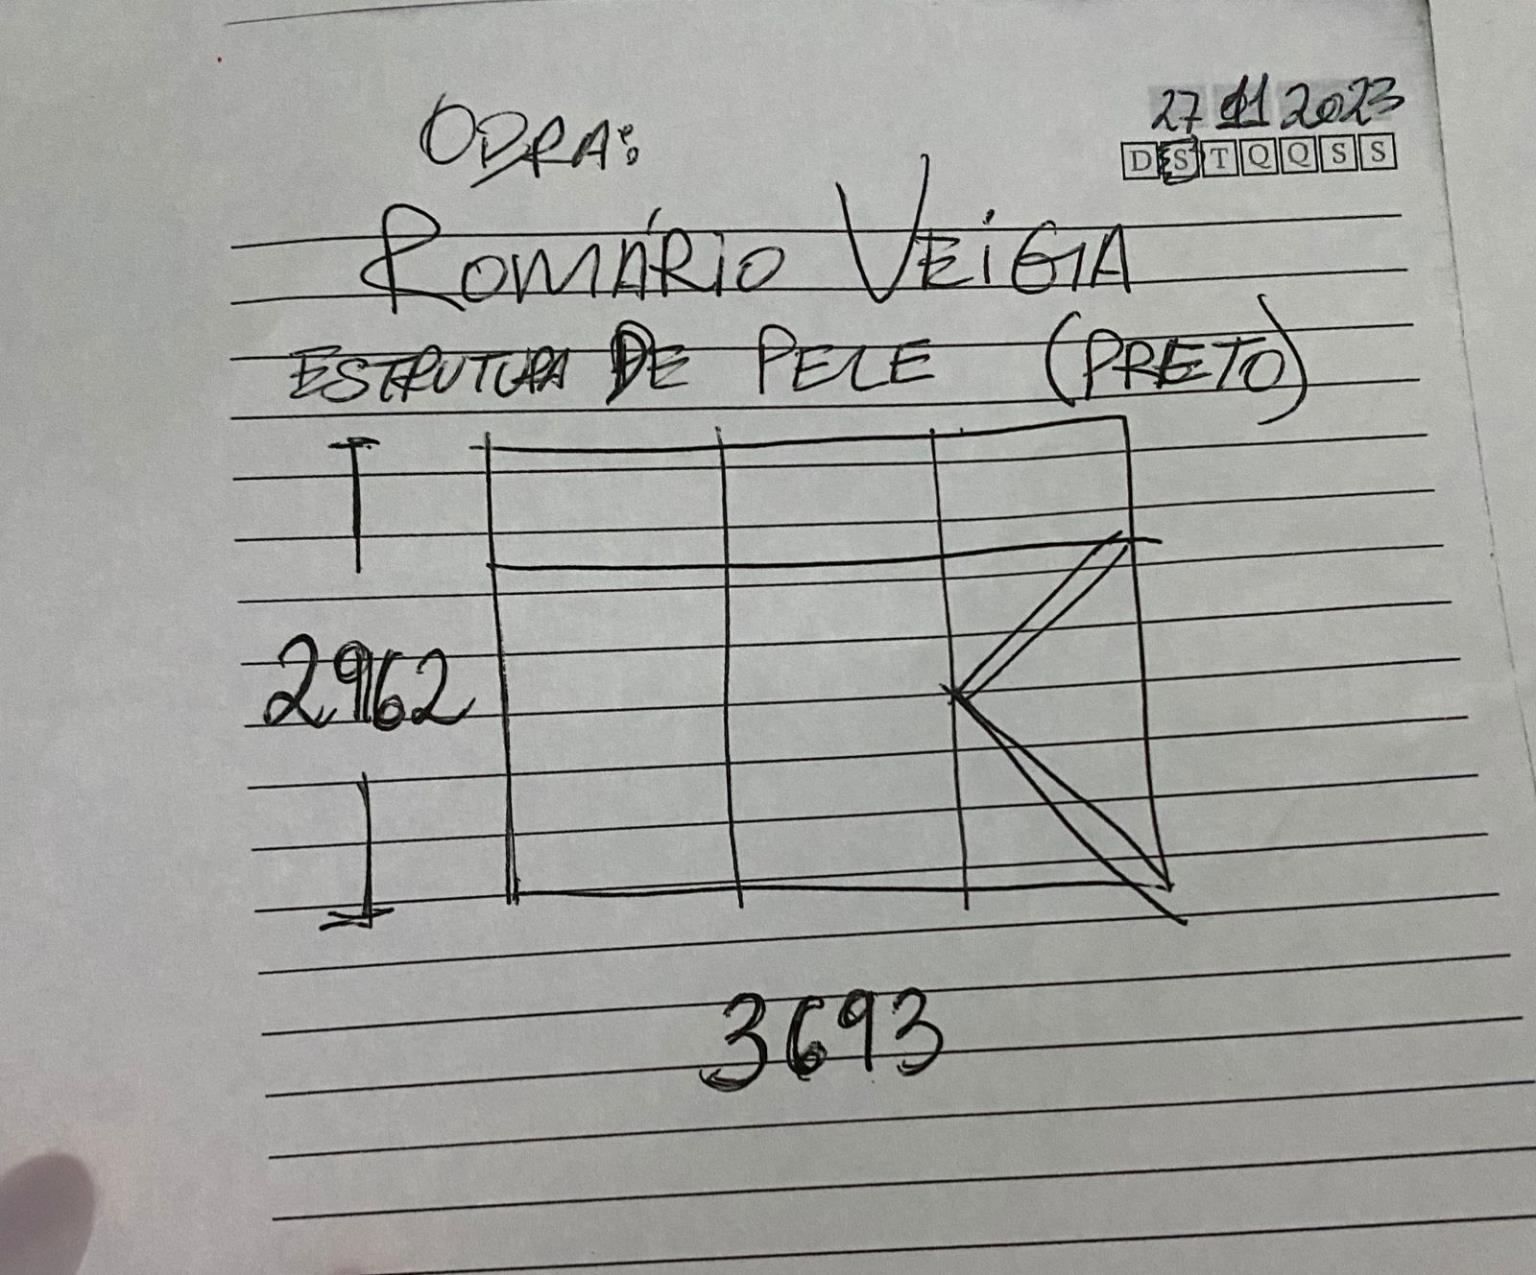 27 11 2023
D S T Q Q S S
OBRA:
ROMÁRIO VEIGA
ESTRUTURA DE PELE (PRETO)
2962
3693